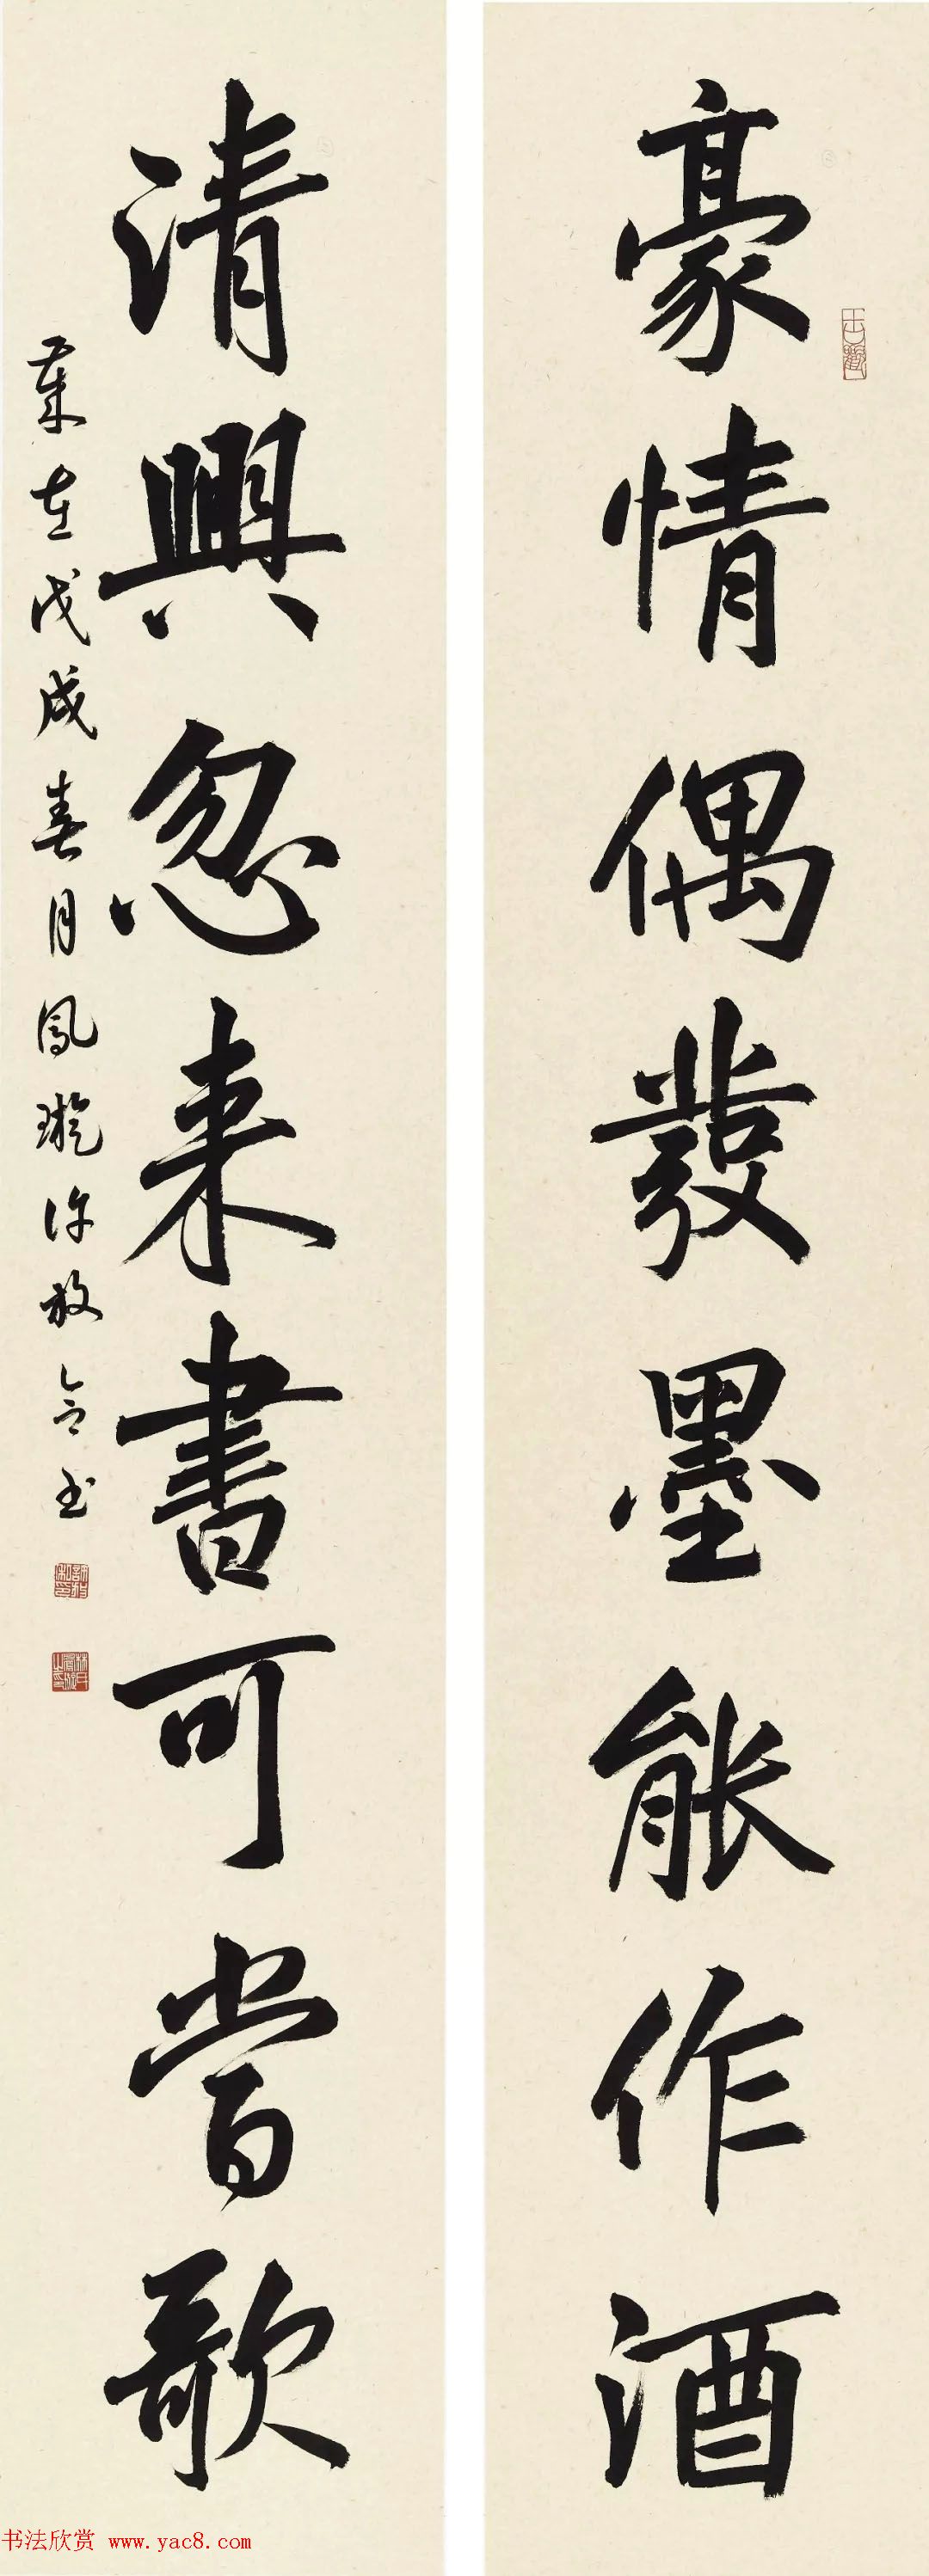 豪情偶發墨能作酒
清興忽来書可當歌
歲在戊戌春月鳳璇許放
书法欣赏 www.yac8.com